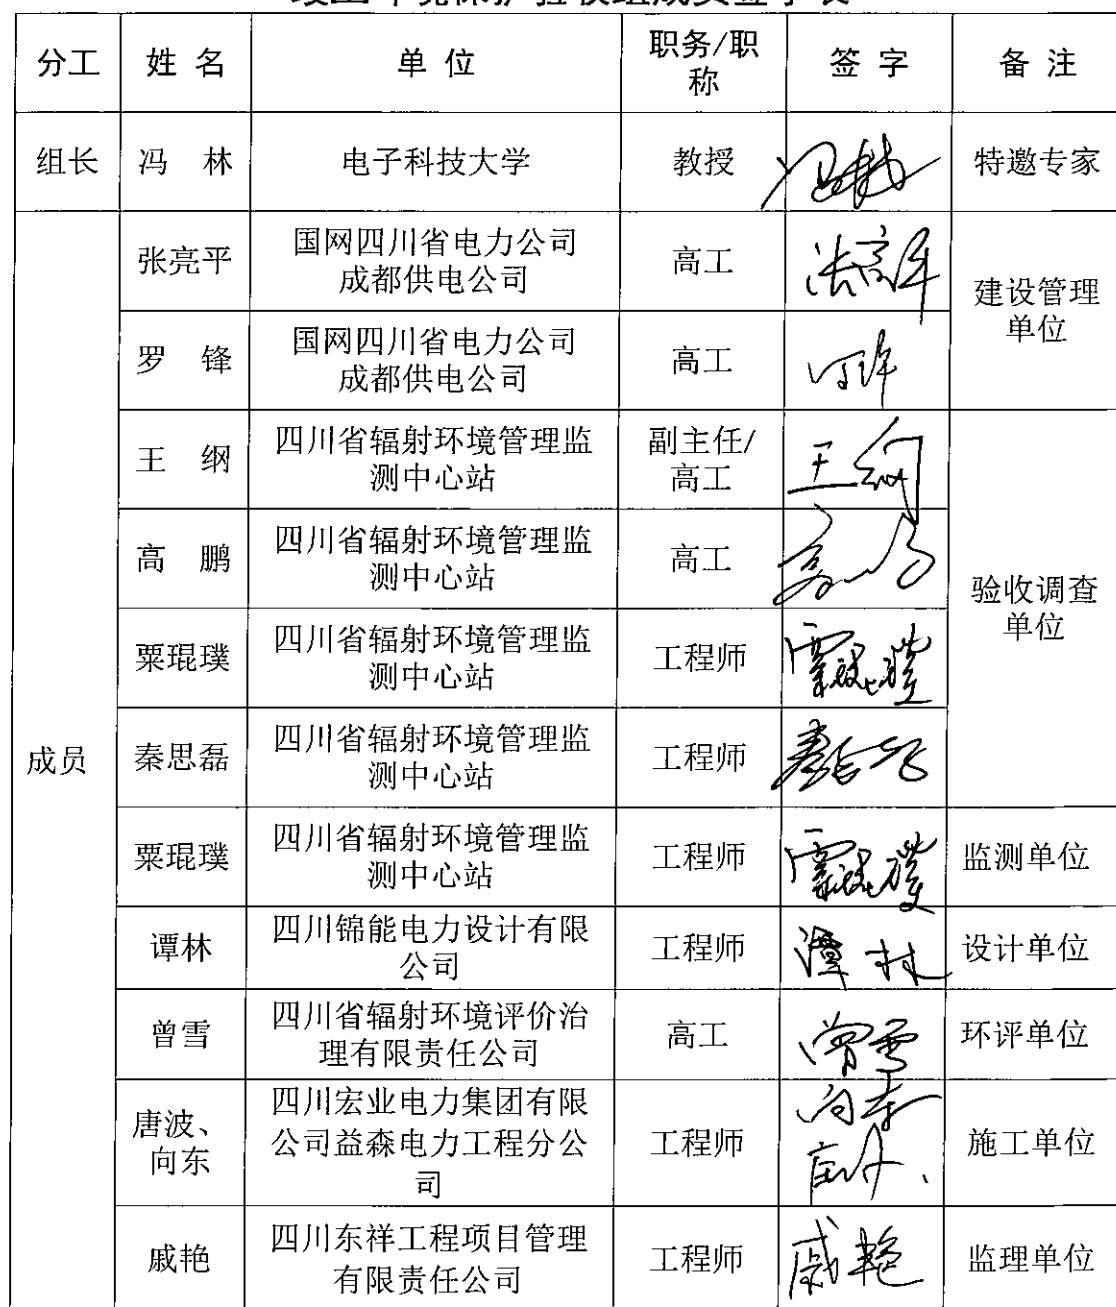 竣工环境保护验收组成员签字表
分工 姓 名 单 位 职务/职称 签 字 备 注
组长 冯 林 电子科技大学 教授 冯林 特邀专家
成员
张亮平 国网四川省电力公司成都供电公司 高工 建设管理单位
罗 锋 国网四川省电力公司成都供电公司 高工
王 纲 四川省辐射环境管理监测中心站 副主任/高工 王纲 验收调查单位
高 鹏 四川省辐射环境管理监测中心站 高工 高鹏
粟琨璞 四川省辐射环境管理监测中心站 工程师 粟琨璞
秦思磊 四川省辐射环境管理监测中心站 工程师 秦思磊
粟琨璞 四川省辐射环境管理监测中心站 工程师 粟琨璞 监测单位
谭林 四川锦能电力设计有限公司 工程师 谭林 设计单位
曾雪 四川省辐射环境评价治理有限责任公司 高工 曾雪 环评单位
唐波、向东 四川宏业电力集团有限公司益森电力工程分公司 工程师 向东 施工单位
戚艳 四川东祥工程项目管理有限责任公司 工程师 戚艳 监理单位